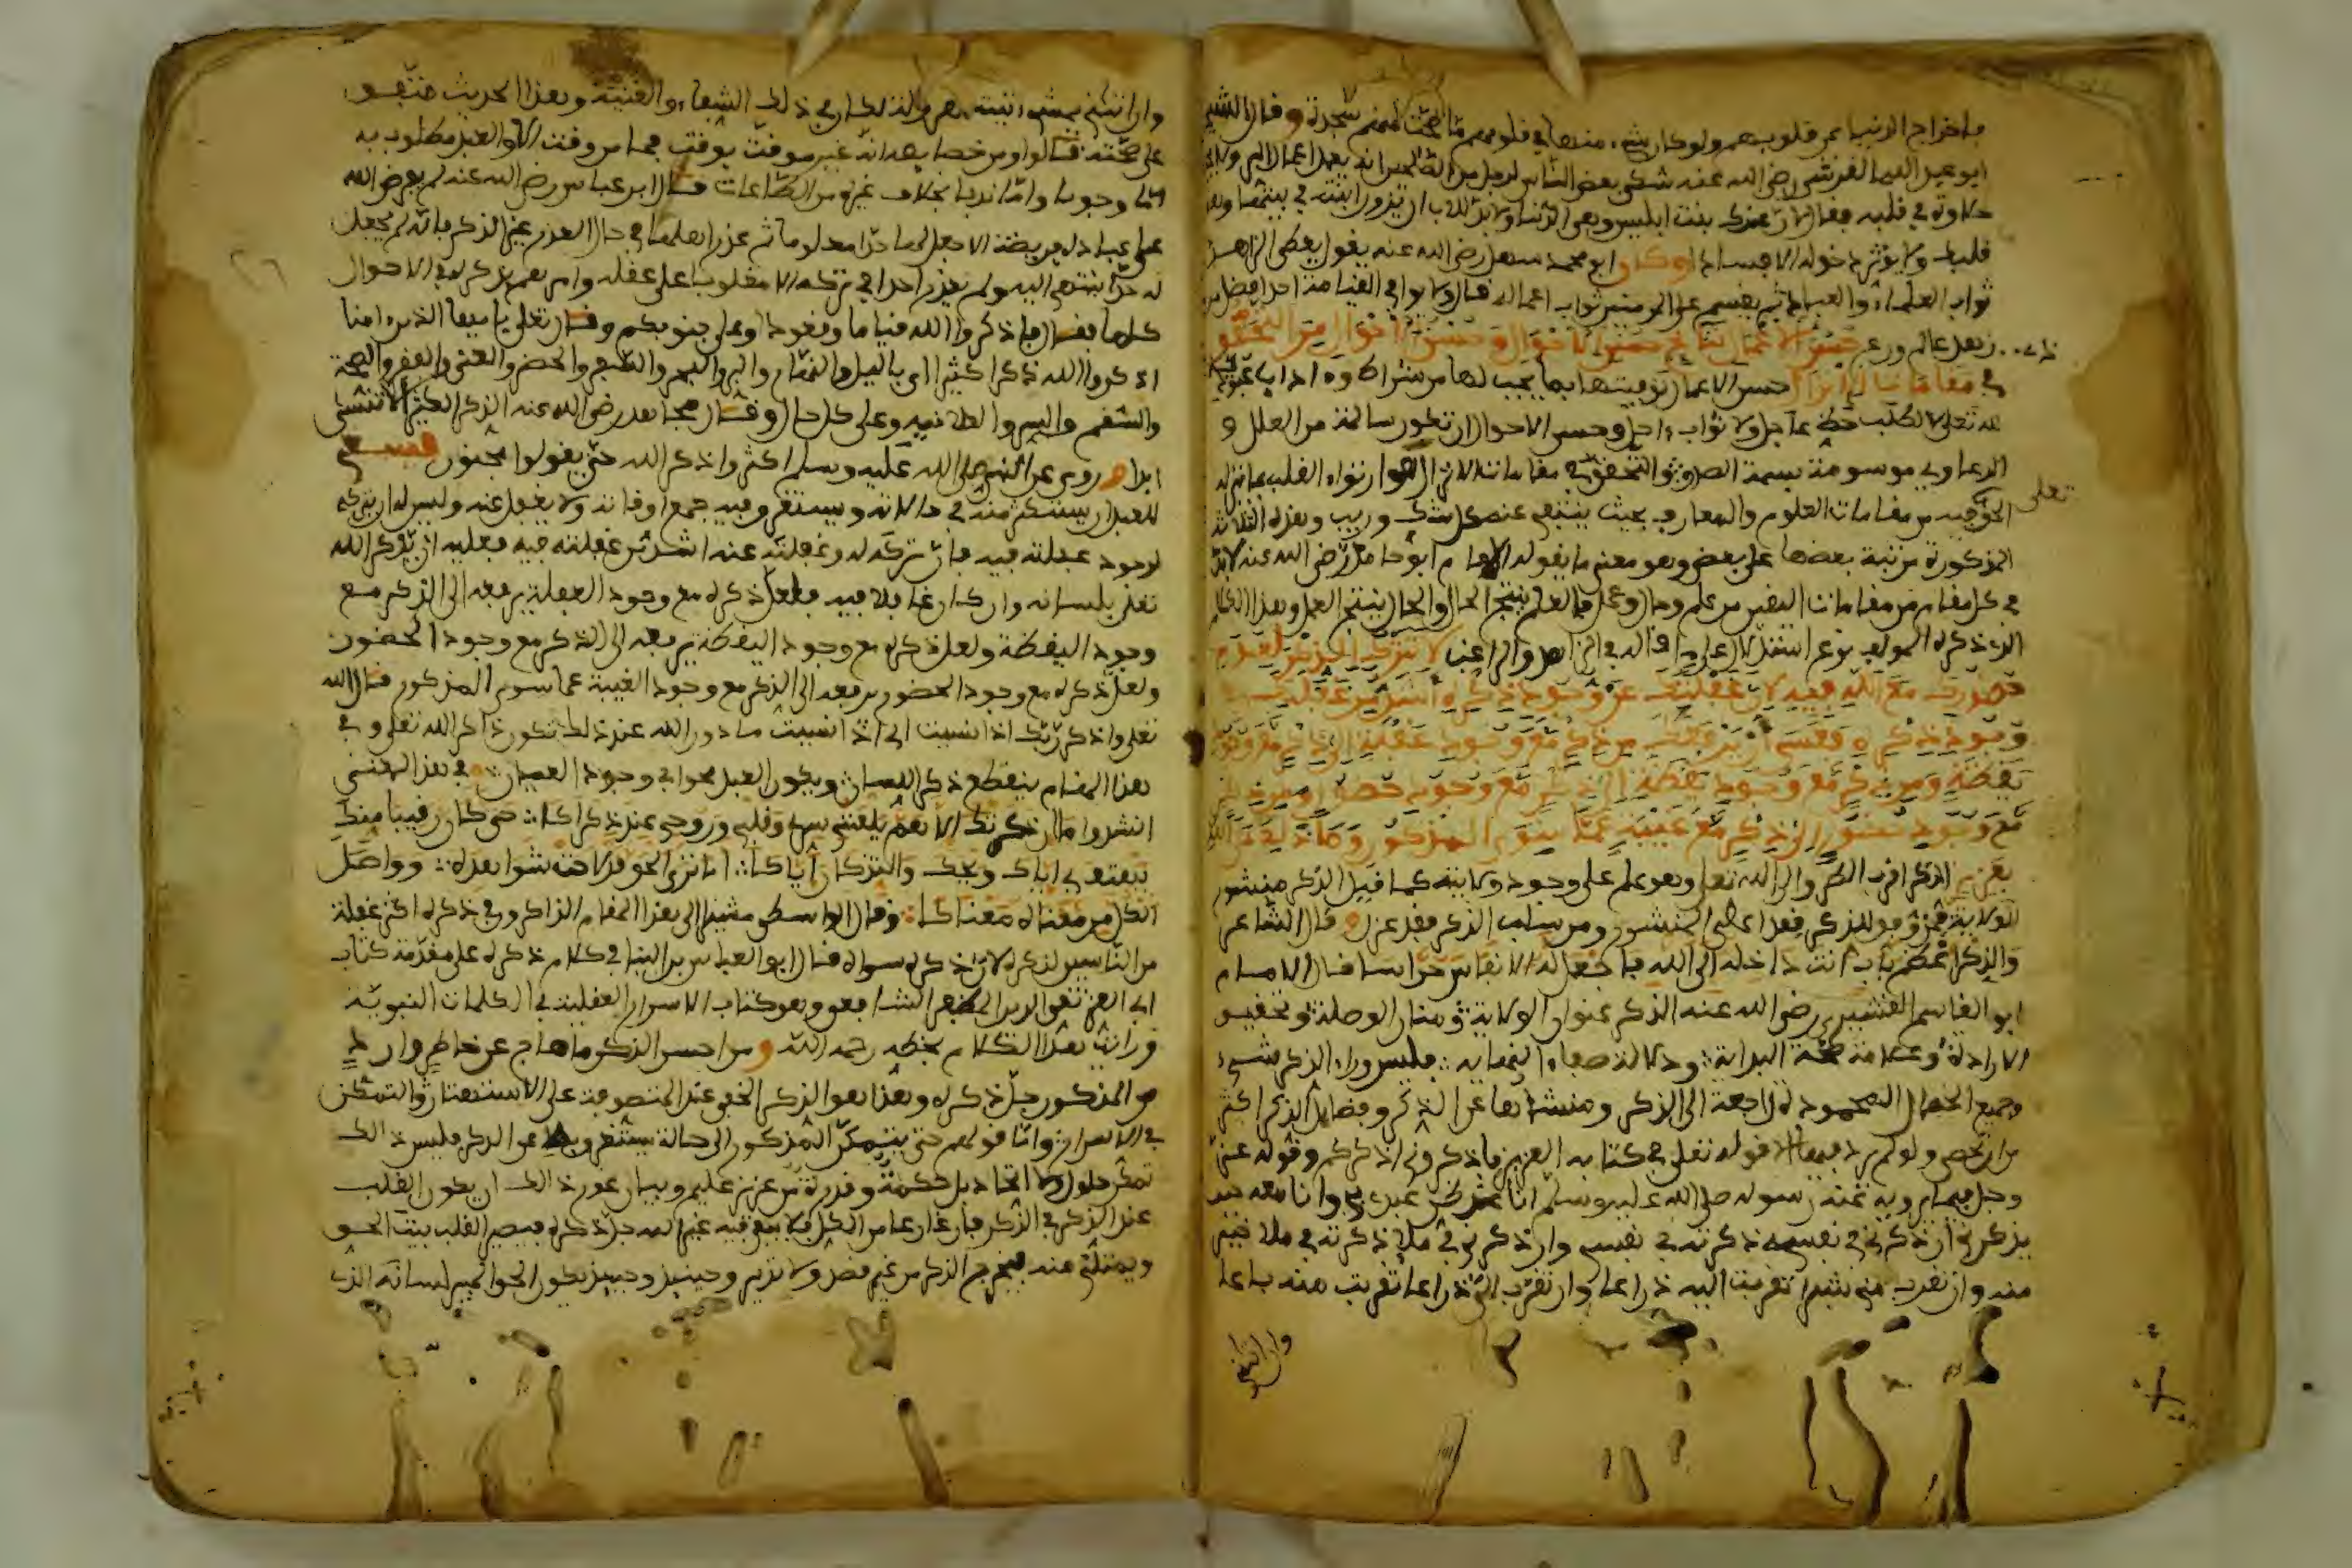 باخراج الدنيا من قلوبهم ولو كان شيء منها في قلوبهم ما صحت لهم سجدة وقال الشيخ
ابو عبد الله القرشي رضي الله عنه شكى بعض الناس لرجل من الصالحين انه يعمل اعمال البر ولا يجد
حلاوة في قلبه فقال لان عندك بنت ابليس وهي الدنيا ولا بد للاب ان يزور ابنته في بيتها وهو
قلبك ولا يؤثر دخوله الا فسادا وكان ابو محمد سهل رضي الله عنه يقول يعطى الزاهد
ثواب العلماء والعباد ثم يقسم على المومنين ثواب اعماله قال ولا يرى في القيامة احد افضل من
زهد عالم ورع حسن الاعمال نتائج حسن الاحوال وحسن الاحوال من التحقق
في مقامات الانزال حسن الاعمال توفيتها بما يجب لها من شرائط واداب عبودية
لله تعلى لا لطلب حظ عاجل ولا ثواب ءاجل وحسن الاحوال ان تكون سالمة من العلل و
الدعاوى موسومة بسمة الصدق والتحقق في مقامات الانزال هو ارتواء القلب بما انزله
تعلى
الحق فيه من مقامات العلوم والمعارف بحيث ينتفي عنه كل شك وريب وهذه الثلاثة
المذكورة مرتبة بعضها على بعض وهو معنى ما يقوله الامام ابو حامد رضي الله عنه لابد
في كل مقام من مقامات اليقين من علم وحال وعمل فالعلم ينتج الحال والحال ينتج العمل وهذا الكلام
الذي ذكره المولف نوع استدلال على ما قاله في الزاهد والراغب لا تترك الذكر لعدم
حضورك مع الله فيه لان غفلتك عن وجود ذكره اشد من غفلتك في
وجود ذكره فعسى ان يرفعك من ذكر مع وجود غفلة الى ذكر مع وجود
يقظة ومن ذكر مع وجود يقظة الى ذكر مع وجود حضور ومن ذكر
مع وجود حضور الى ذكر مع غيبة عما سوى المذكور وما ذلك على الله
بعزيز الذكر اقرب الطرق الى الله تعلى وهو علم على وجود ولايته كما قيل الذكر منشور
الولاية فمن وفق للذكر فقد اعطي المنشور ومن سلب الذكر فقد عزل قال الشاعر
والذكر اعظم باب انت داخله الى الله فاجعل له الانفاس حراسا قال الامام
ابو القاسم القشيري رضي الله عنه الذكر عنوان الولاية ومنار الوصلة وتحقيق
الارادة وعلامة صحة البداية ودلالة صفاء النهاية فليس وراء الذكر شيء
وجميع الخصال المحمودة راجعة الى الذكر ومنشؤها عن الذكر وفضايل الذكر اكثر
من ان تحصى ولو لم يرد فيها الا قوله تعلى في كتابه العزيز فاذكروني اذكركم وقوله عز
وجل فيما يرويه عنه رسوله صلى الله عليه وسلم انا عند ظن عبدي بي وانا معه حين
يذكرني ان ذكرني في نفسه ذكرته في نفسي وان ذكرني في ملإ ذكرته في ملإ خير
منه وان تقرب مني شبرا تقربت اليه ذراعا وان تقرب الي ذراعا تقربت منه باعا
وان اتاني
وان اتاني يمشي اتيته هرولة لكان في ذلك الشفاء والغنية وهذا الحديث متفق
على صحته قالوا ومن خصايصه انه غير موقت بوقت فما من وقت الا والعبد مطلوب به
اما وجوبا واما ندبا بخلاف غيره من الطاعات قال ابن عباس رضي الله عنه لم يفرض الله
على عباده فريضة الا جعل لها حدا معلوما ثم عذر اهلها في حال العذر غير الذكر فانه لم يجعل
له حدا ينتهي اليه ولم يعذر احدا في تركه الا مغلوبا على عقله وامرهم بذكره في الاحوال
كلها فقال فاذكروا الله قياما وقعودا وعلى جنوبكم وقال تعلى يا ايها الذين امنوا
اذكروا الله ذكرا كثيرا اي بالليل والنهار والبر والبحر والسفر والحضر والغنى والفقر والصحة
والسقم والسر والعلانية وعلى كل حال وقال مجاهد رضي الله عنه الذكر الكثير الا تنسى
ابدا روى عن النبي صلى الله عليه وسلم اكثروا ذكر الله حتى يقولوا مجنون فينبغي
للعبد ان يستكثر منه في حالاته ويستغرق فيه جميع اوقاته ولا يغفل عنه وليس له ان يتركه
لوجود غفلته فيه فان تركه له وغفلته عنه اشد من غفلته فيه فعليه ان يذكر الله
تعلى بلسانه وان كان غافلا فيه فلعل ذكره مع وجود الغفلة يرفعه الى الذكر مع
وجود اليقظة ولعل ذكره مع وجود اليقظة يرفعه الى الذكر مع وجود الحضور
ولعل ذكره مع وجود الحضور يرفعه الى الذكر مع وجود الغيبة عما سوى المذكور قال الله
تعلى واذكر ربك اذا نسيت اي اذا نسيت ما دون الله عند ذلك تكون ذاكرا لله تعلى وفي
هذا المقام ينقطع ذكر اللسان ويكون العبد محوا في وجود العيان في هذا المعنى
انشدوا ما ان ذكرتك الا هم يلعنني سري وقلبي وروحي عند ذكراك حتى كان رقيبا منك
يهتف بي اياك ويحك والتذكار اياك اما ترى الحق قد لاحت شواهده وواصل
الكل من معناه معناك وقال الواسطي مشيرا الى هذا المقام الذاكرون في ذكره اكثر غفلة
من الناسين لذكره لان ذكره سواه قال ابو العباس بن البنا في كلام ذكره على مقدمة كتاب
ابي العز تقي الدين المظفر الشافعي وهو كتاب الاسرار العقلية في الكلمات النبوية
ورايت هذا الكلام بخطه رحمه الله ومن احسن الذكر ما هاج عن خاطر وارد
من المذكور جل ذكره وهذا هو الذكر الخفي عند المتصوفة على الاستهتار والتمكن
في الاسرار واما قولهم حتى يتمكن المذكور الى حالة يستغرق بها عن الذكر فليس ذلك
تمكن حلول ولا اتحاد بل حكمة وقدرة من عزيز عليم وبيان ذلك ان يكون القلب
عند الذكر في الذكر فارغا من الكل فلا يبقى فيه غير الله جل ذكره فيصير القلب بيت الحق
ويمتلئ منه فيخرج الذكر من غير قصد ولا تدبر وحينئذ يكون الحق المبين لسانه الذي